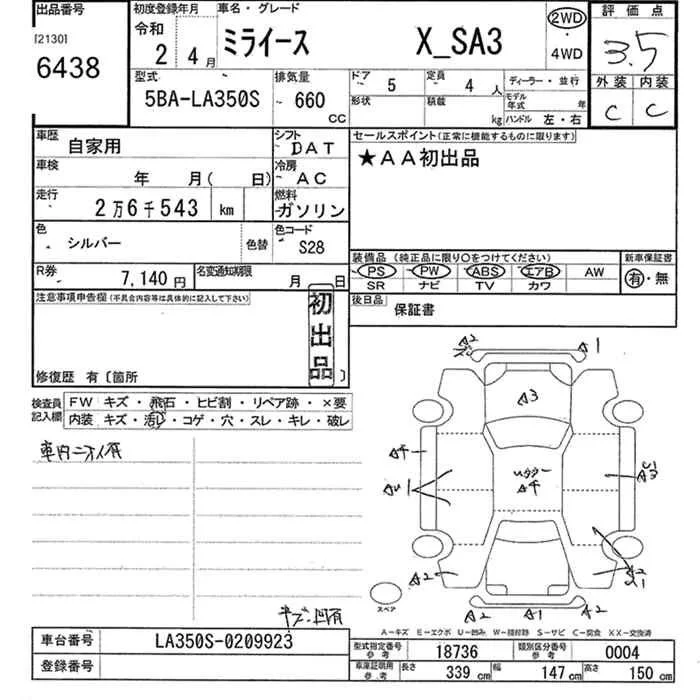 出品番号
[2130]
6438
初度登録年月
令和
2年 4月
車名・グレード
ミライース X_SA3
2WD
・
4WD
評価点
3.5
外装 内装
C C
型式
5BA-LA350S
排気量
~ 660 CC
ドア 5
定員 4 人
形状
積載 kg
ディーラー・並行
モデル年式 年
ハンドル 左・右
車歴 自家用
シフト DAT
車検 年 月( 日)
冷房 AC
走行 2万6千543 km
燃料 ガソリン
色 シルバー 色替
色コード S28
R券 7,140円
名変通知期限 月 日
セールスポイント(正常に機能するものに限ります)
★AA初出品
装備品 (純正品に限り○をつけてください)
PS PW ABS エアB AW
SR ナビ TV カワ
新車保証書
有・無
後日品 保証書
注意事項申告欄(不具合内容等は具体的に記入して下さい)
初出品
修復歴 有〔箇所 〕
検査員記入欄
FW キズ・飛石・ヒビ割・リペア跡・×要
内装 キズ・汚レ・コゲ・穴・スレ・キレ・破レ
車内ニオイ有
キズ・凹有
A2
A1
A3
Aキ
Aキ
AU1
A2
A2
A1
A2
A2
スペア
A-キズ E-エクボ U-凹み W-補修跡 S-サビ C-腐食 XX-交換済
車台番号 LA350S-0209923
登録番号
型式指定番号参考 18736
類別区分番号参考 0004
車庫証明用参考 長さ 339 cm 幅 147 cm 高さ 150 cm